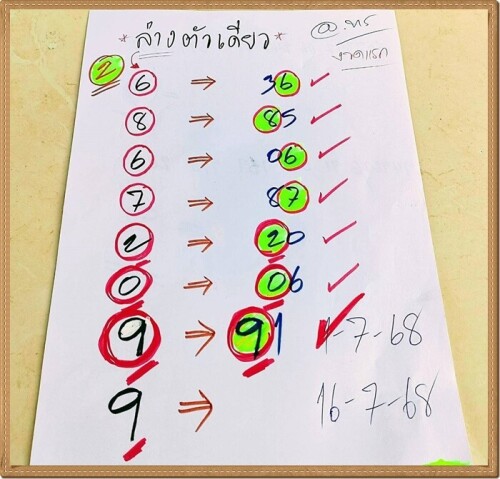 *ล่างตัวเดียว*
งวดแรก
2
6 ⇒ 36 ✓
8 ⇒ 85 ✓
6 ⇒ 06 ✓
7 ⇒ 87 ✓
2 ⇒ 20 ✓
0 ⇒ 06 ✓
9 ⇒ 91 ✓ 1-7-68
9 ⇒ 16-7-68